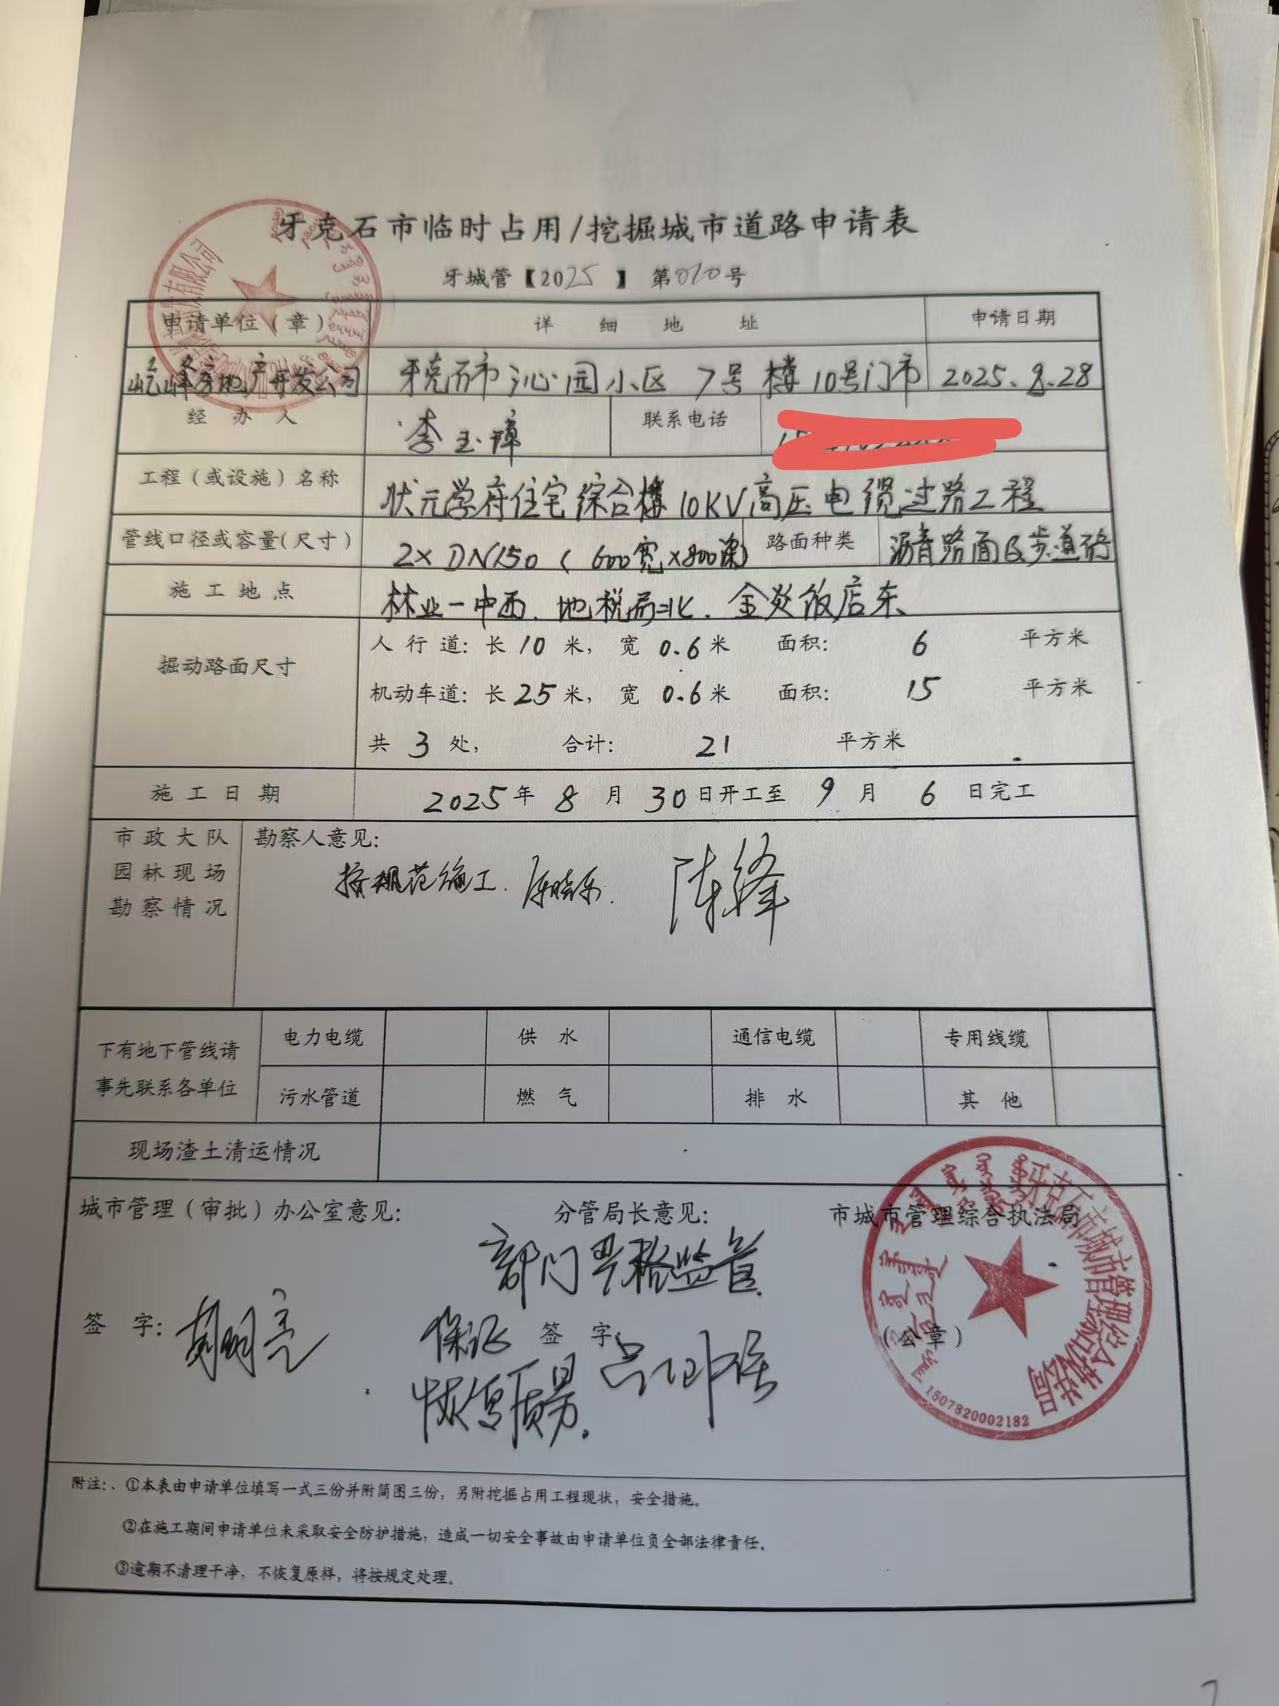 牙克石市临时占用/挖掘城市道路申请表
牙城管【2025】 第010号
申请单位(章) 详细地址 申请日期
屹峰房地产开发公司 牙克石市沁园小区7号楼10号门市 2025.8.28
经办人 李玉璋 联系电话
工程(或设施)名称 状元学府住宅综合楼10KV高压电缆过路工程
管线口径或容量(尺寸) 2×DN150(600宽×800深) 路面种类 沥青路面及步道砖
施工地点 林业一中西.地税局北.金炎饭店东
掘动路面尺寸
人行道: 长10米, 宽0.6米 面积: 6 平方米
机动车道: 长25米, 宽0.6米 面积: 15 平方米
共3处, 合计: 21 平方米
施工日期 2025年8月30日开工至9月6日完工
市政大队 勘察人意见:
园林现场 按规范施工. 陈峰
勘察情况
下有地下管线请事先联系各单位
电力电缆 供水 通信电缆 专用线缆
污水管道 燃气 排水 其他
现场渣土清运情况
城市管理(审批)办公室意见: 分管局长意见: 市城市管理综合执法局
部门严格监管
签字: 胡明亮 保证 签字 (公章)
恢复质量.
牙克石市城市管理综合执法局
1507820002182
附注:、①本表由申请单位填写一式三份并附简图三份,另附挖掘占用工程现状,安全措施。
②在施工期间申请单位未采取安全防护措施,造成一切安全事故由申请单位负全部法律责任。
③逾期不清理干净,不恢复原样,将按规定处理。